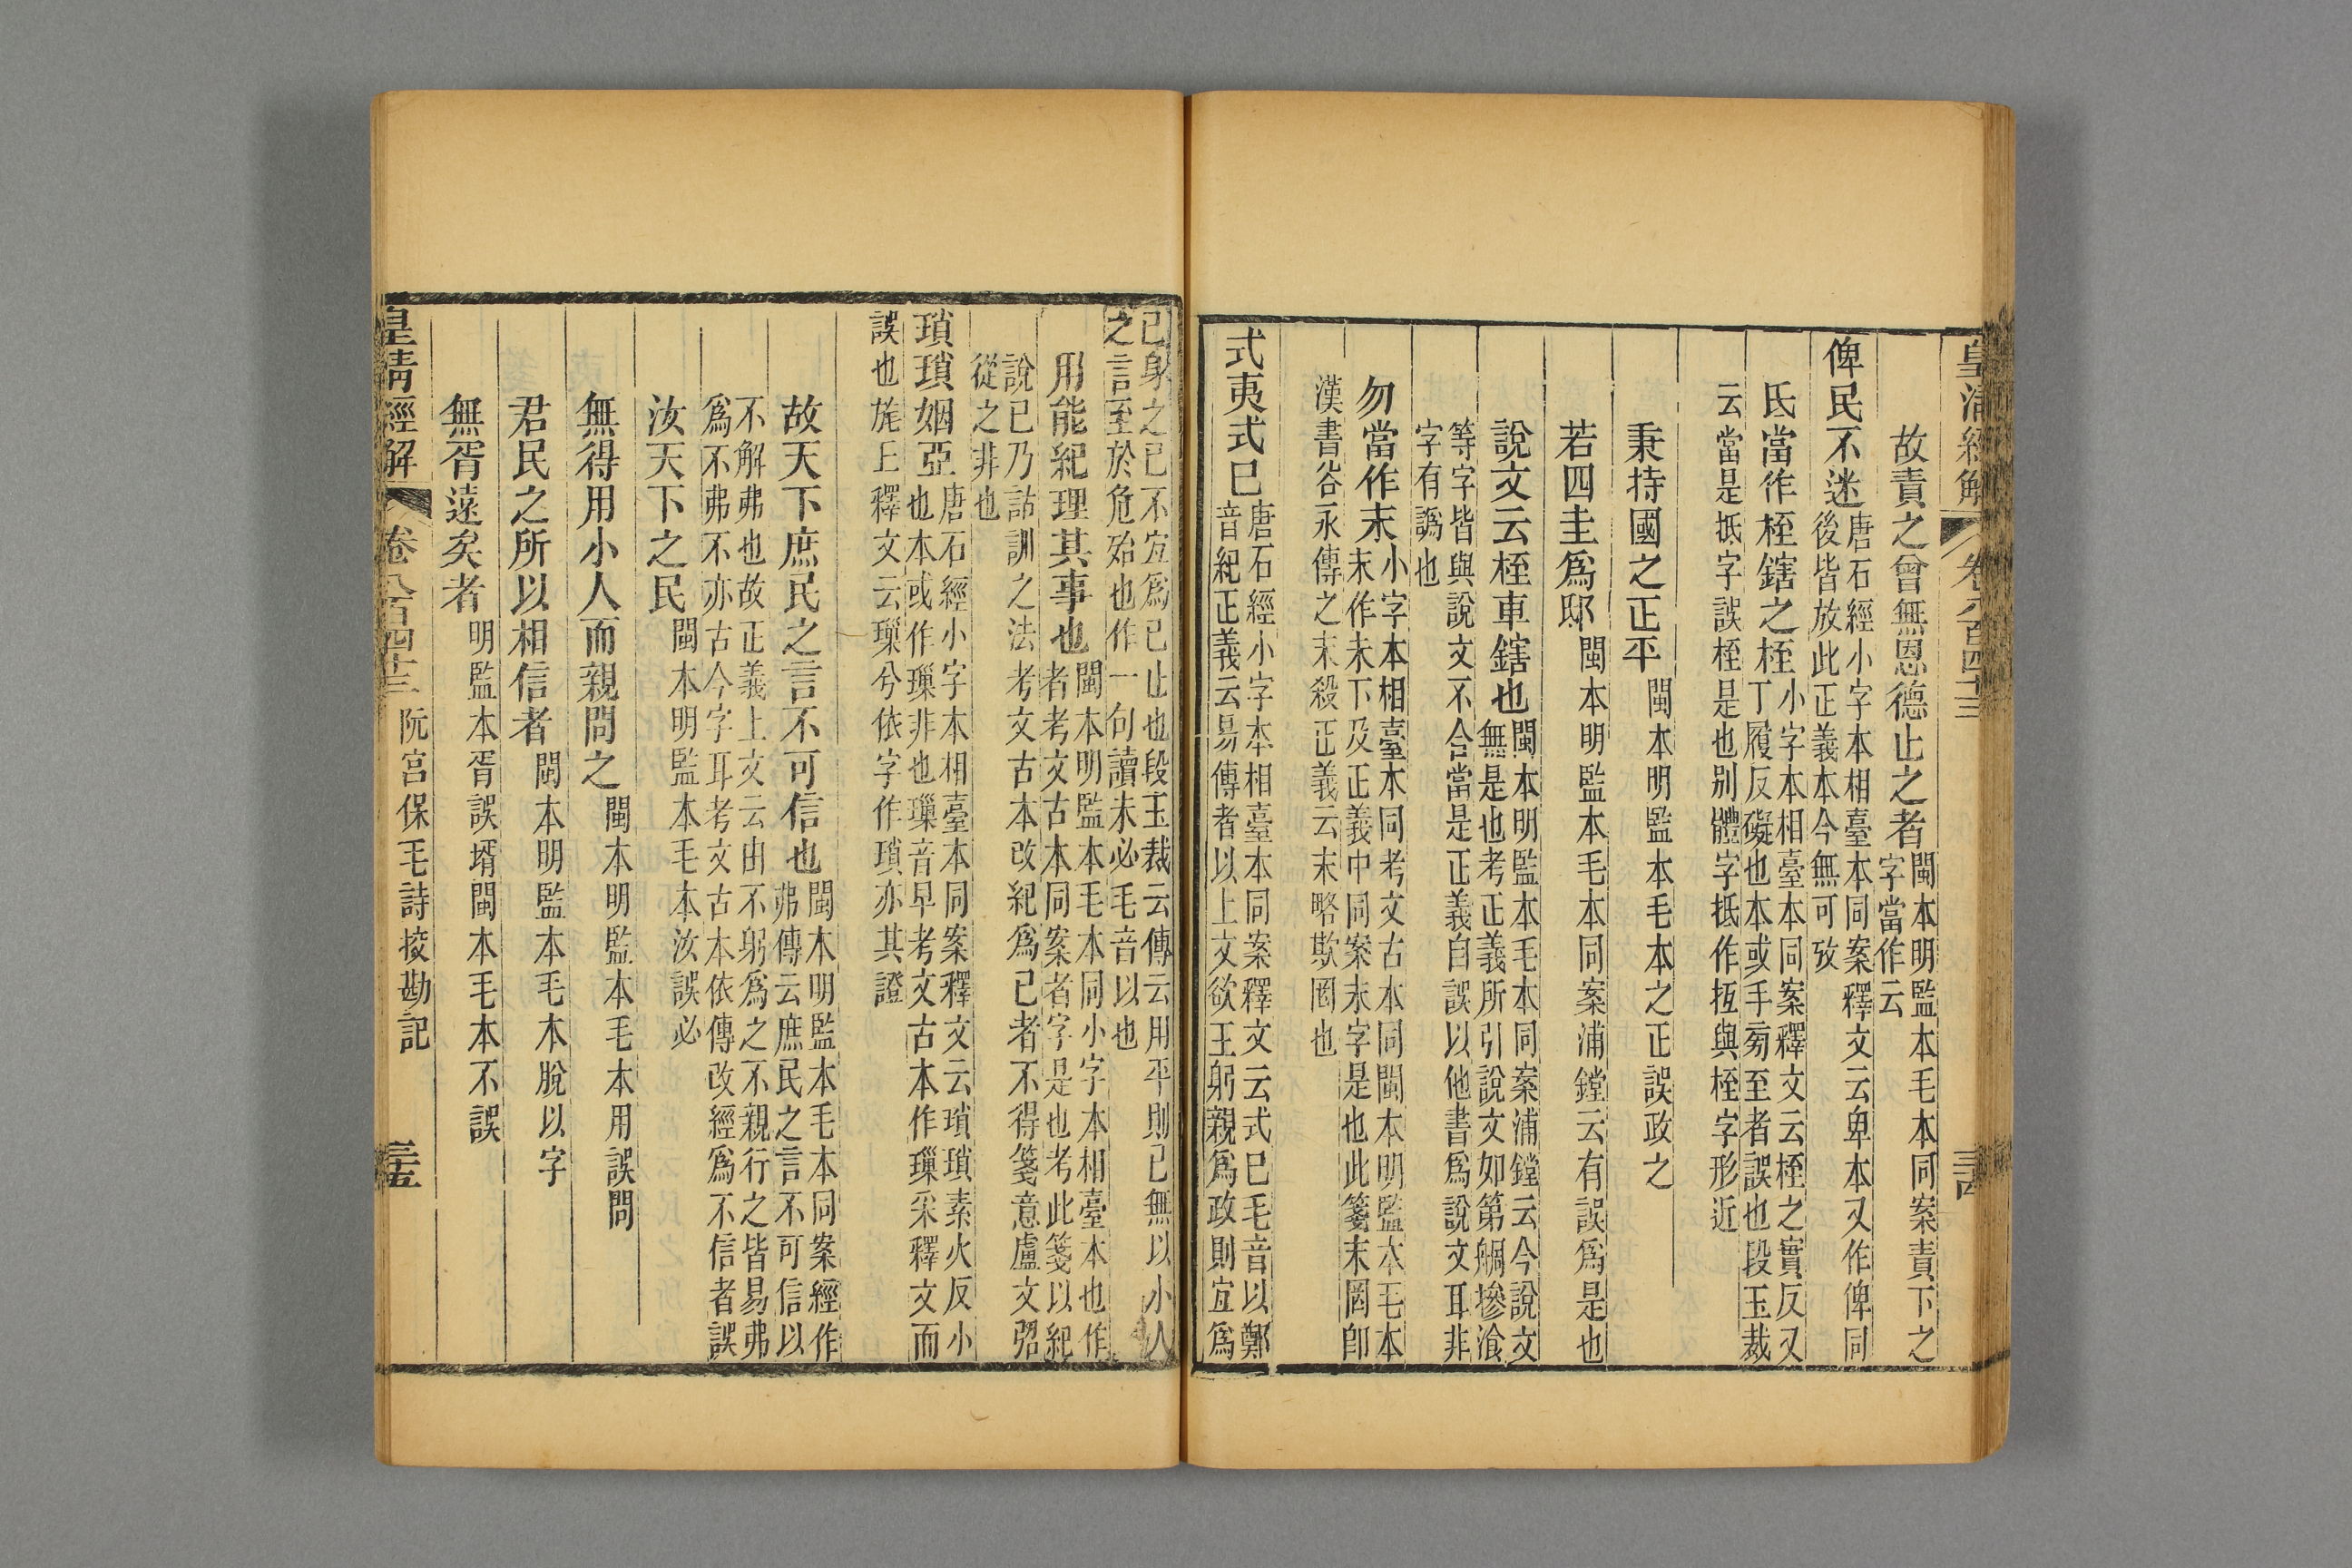 皇清經解 卷八百四十三 三十四
故責之曾無恩德止之者 閩本明監本毛本同案責下之
字當作云
俾民不迷 唐石經小字本相臺本同案釋文云卑本又作俾同
後皆放此正義本今無可攷
氐當作桎鎋之桎 小字本相臺本同案釋文云桎之實反又
丁履反礙也本或手旁至者誤也段玉裁
云當是抵字誤桎是也别體字抵作挃與桎字形近
秉持國之正平 閩本明監本毛本之正誤政之
若四圭爲邸 閩本明監本毛本同案浦鏜云有誤爲是也
說文云桎車鎋也 閩本明監本毛本同案浦鏜云今說文
無是也考正義所引說文如第觸摻飡
等字皆與說文不合當是正義自誤以他書爲說文耳非
字有譌也
勿當作末 小字本相臺本同考文古本同閩本明監本毛本
末作未下及正義中同案末字是也此箋末罔卽
漢書谷永傳之末殺正義云末略欺罔也
式夷式已 唐石經小字本相臺本同案釋文云式已毛音以鄭
音紀正義云易傳者以上文欲王躬親爲政則宜爲
已身之已不宜爲已止也段玉裁云傳云用平則已無以小人
之言至於危殆也作一句讀未必毛音以也
用能紀理其事也 閩本明監本毛本同小字本相臺本也作
者考文古本同案者字是也考此箋以紀
說已乃詁訓之法考文古本改紀爲已者不得箋意盧文弨
從之非也
瑣瑣姻亞 唐石經小字本相臺本同案釋文云瑣瑣素火反小
也本或作璅非也璅音早考文古本作璅采釋文而
誤也旄丘釋文云璅兮依字作瑣亦其證
故天下庶民之言不可信也 閩本明監本毛本同案經作
弗傳云庶民之言不可信以
不解弗也故正義上文云由不躬爲之不親行之皆易弗
爲不弗不亦古今字耳考文古本依傳改經爲不信者誤
汝天下之民 閩本明監本毛本汝誤必
無得用小人而親問之 閩本明監本毛本用誤問
君民之所以相信者 閩本明監本毛本脫以字
無胥遠矣者 明監本胥誤壻閩本毛本不誤
皇清經解 卷八百四十三 阮宫保毛詩挍勘記 三十五